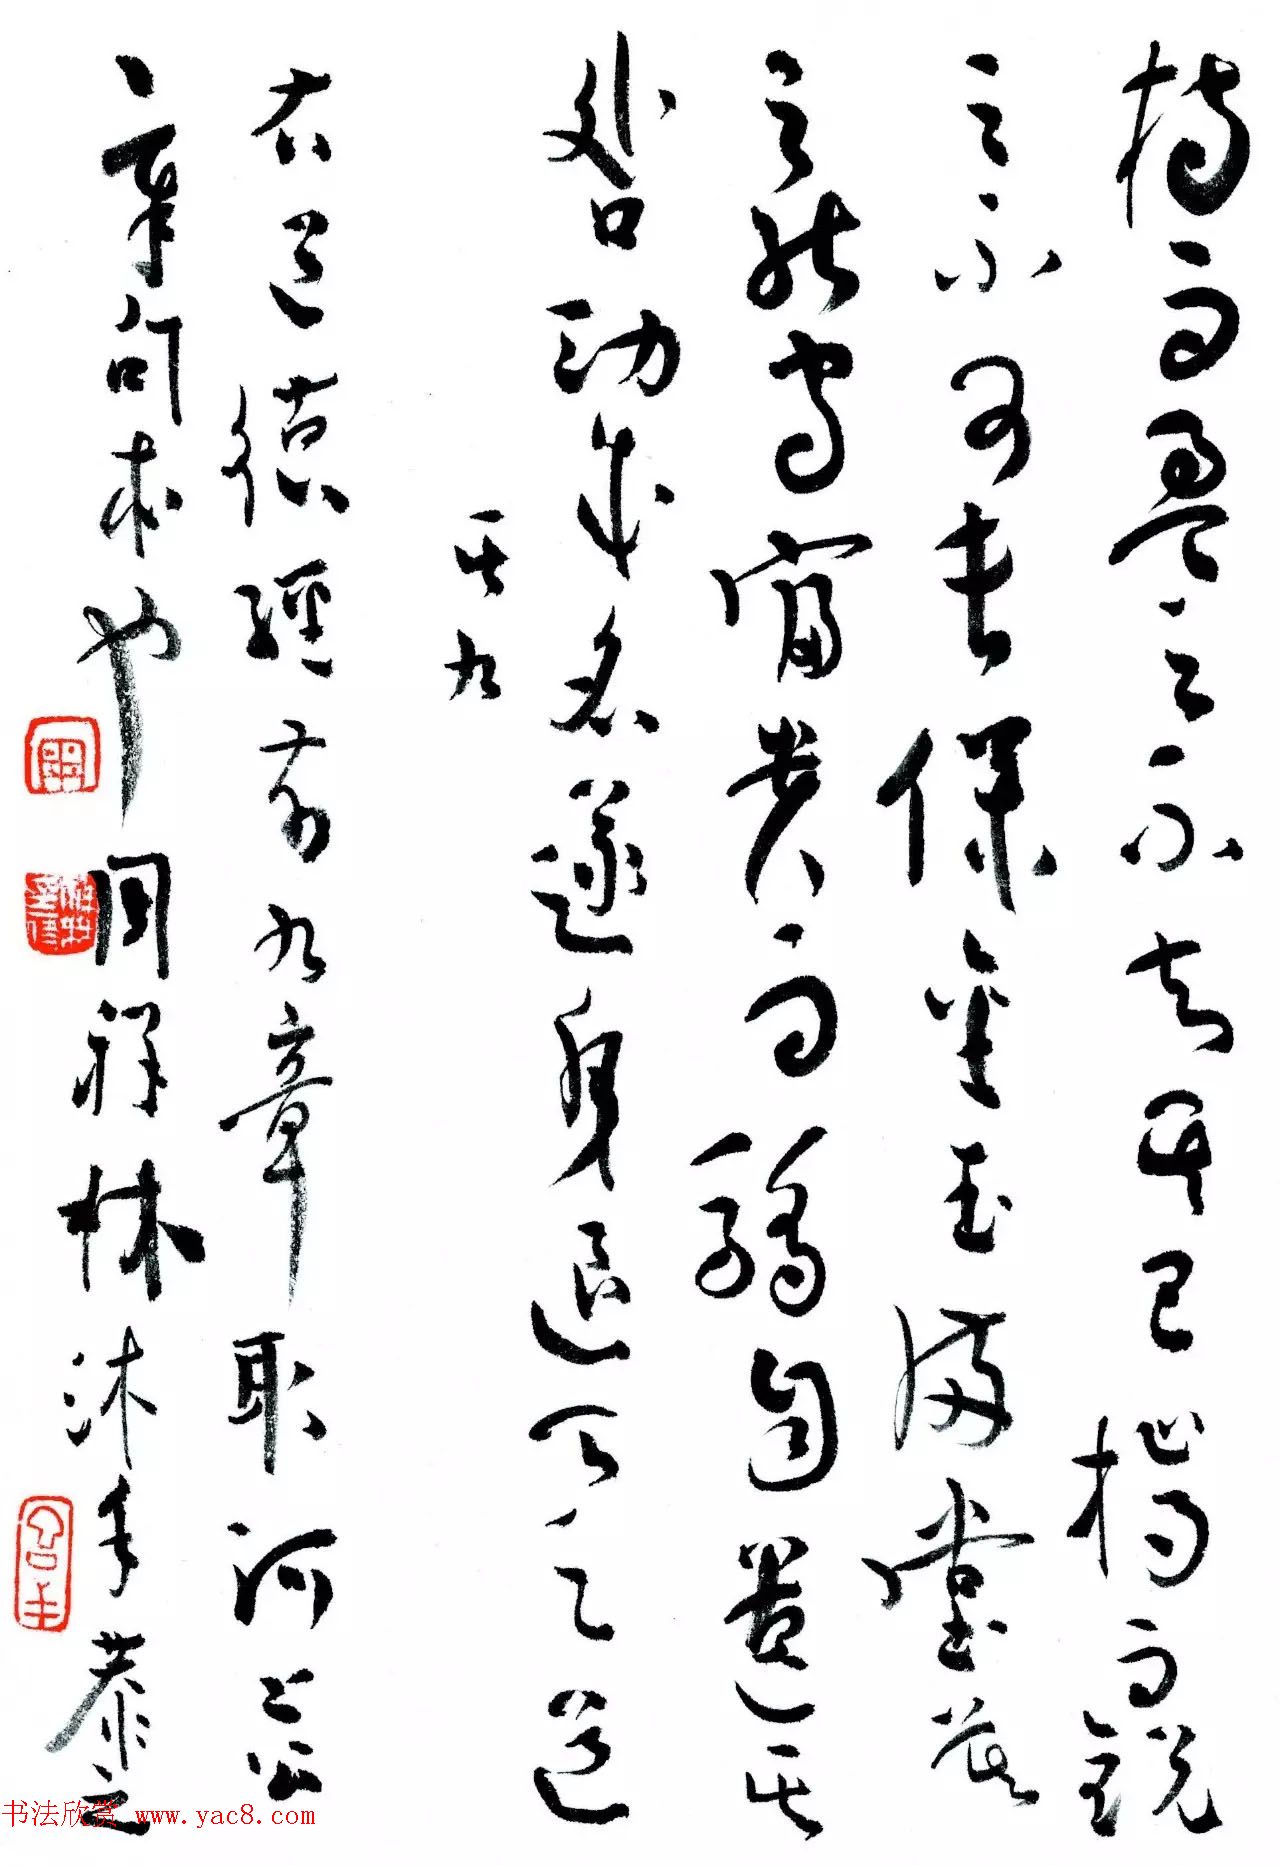 持而盈之不如其已揣而銳
之不可長保金玉滿堂莫
之能守富貴而驕自遺其
咎功成名遂身退天之道
其九
右道德經前九章取河上公
章句本也周祥林沐手恭之
书法欣赏 www.yac8.com